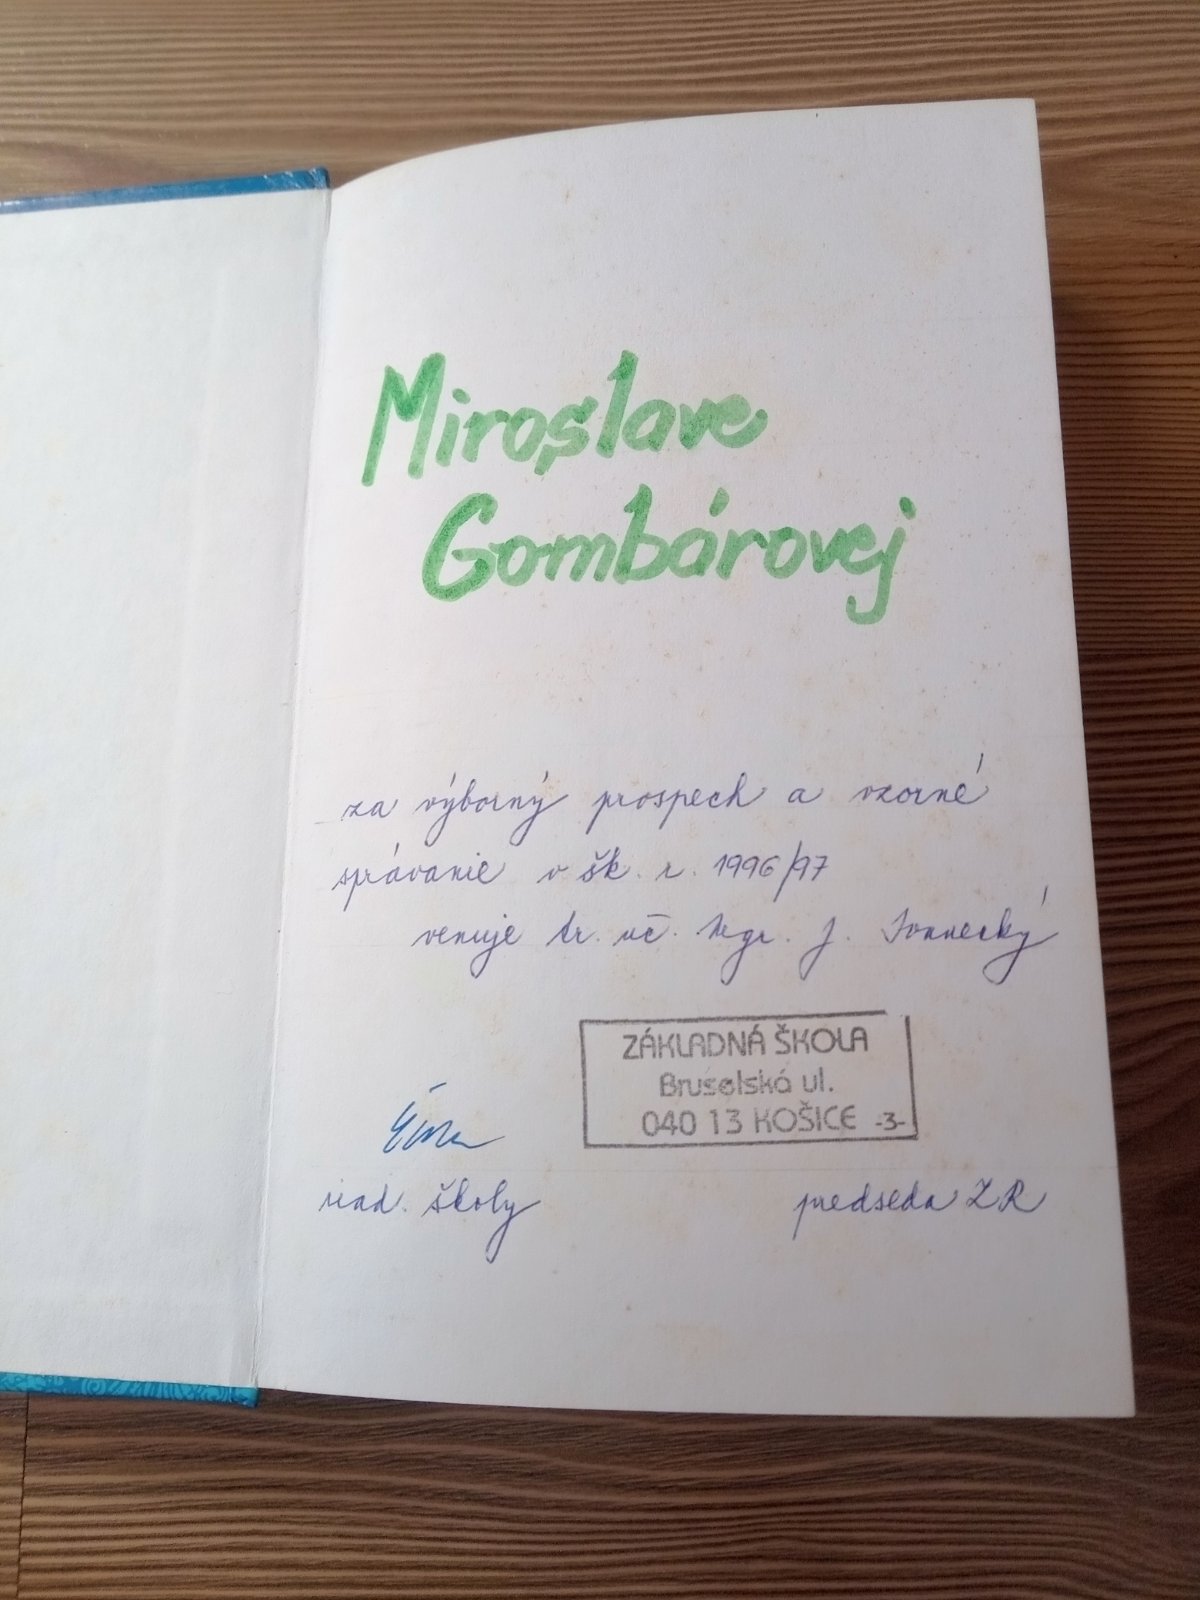 Miroslave
Gombárovej
za výborný prospech a vzorné
správanie v šk. r. 1996/97
venuje tr. uč. Mgr. J.
ZÁKLADNÁ ŠKOLA
Bruselská ul.
040 13 KOŠICE -3-
riad. školy
predseda ZR